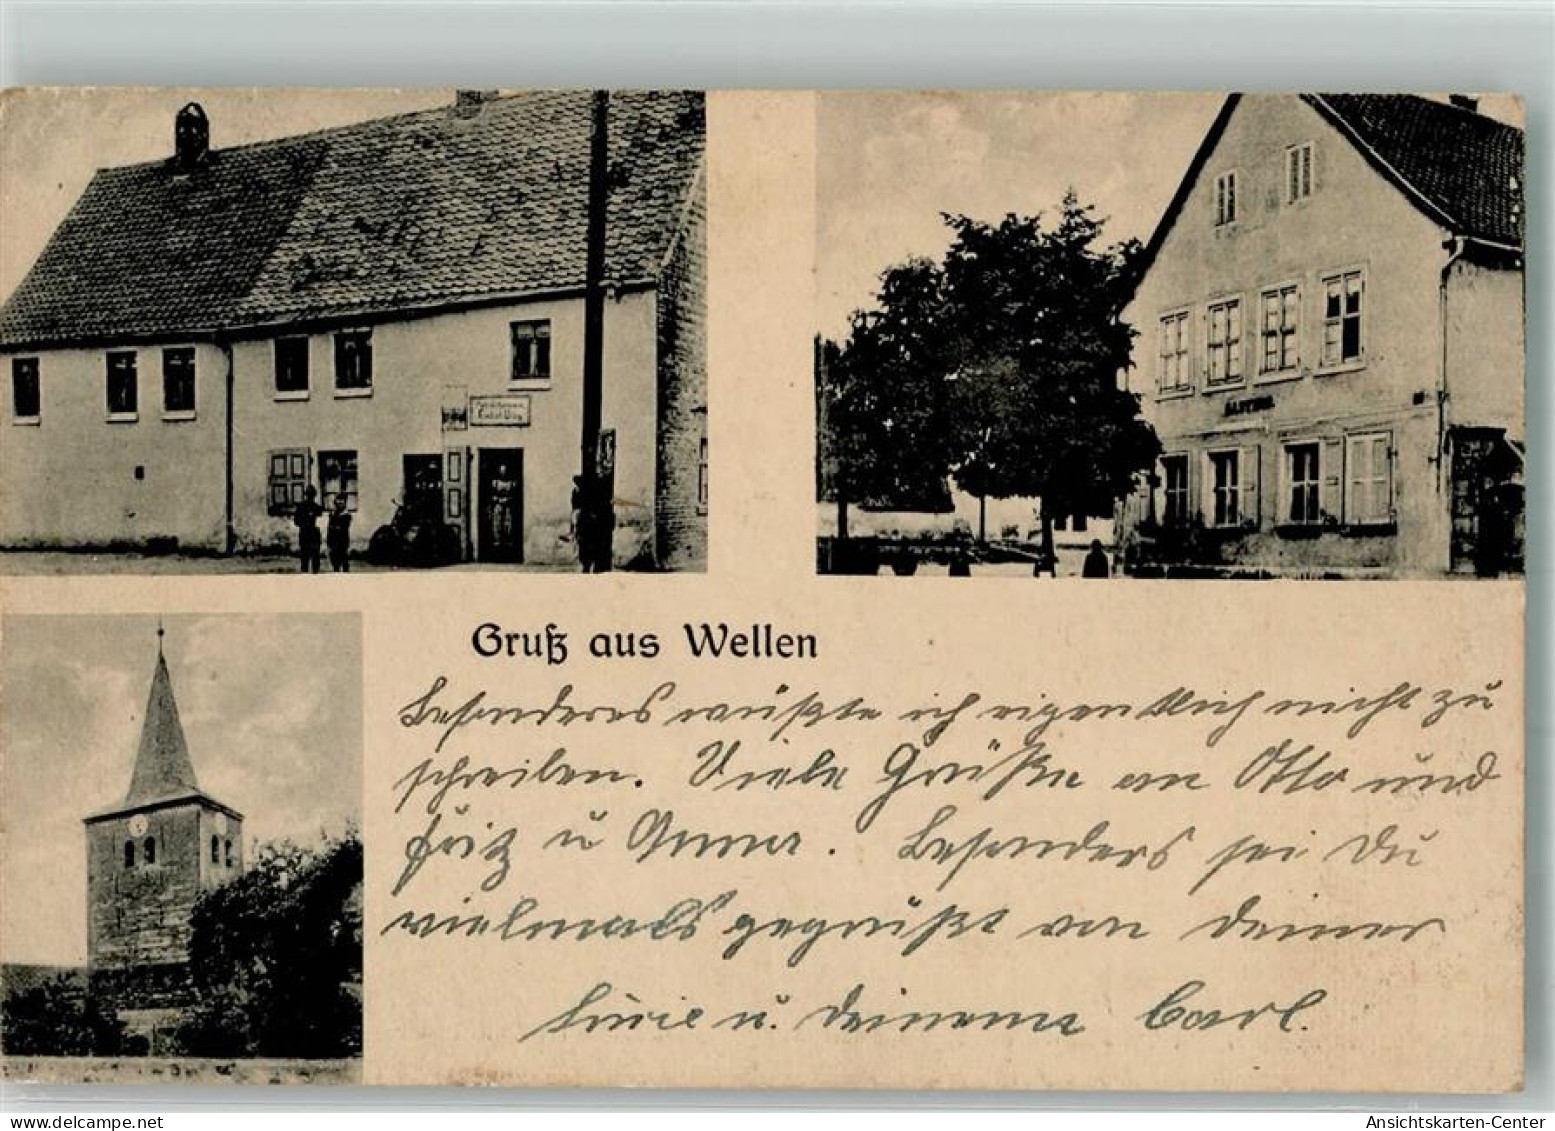 GASTHOF
Gruß aus Wellen
Besonderes wüßte ich eigentlich nicht zu
schreiben. Viele Grüße an Otto und
Fritz u Anna. Besonders sei Du
vielmals gegrüßt von Deiner
u. Deinem Carl.
Ansichtskarten-Center